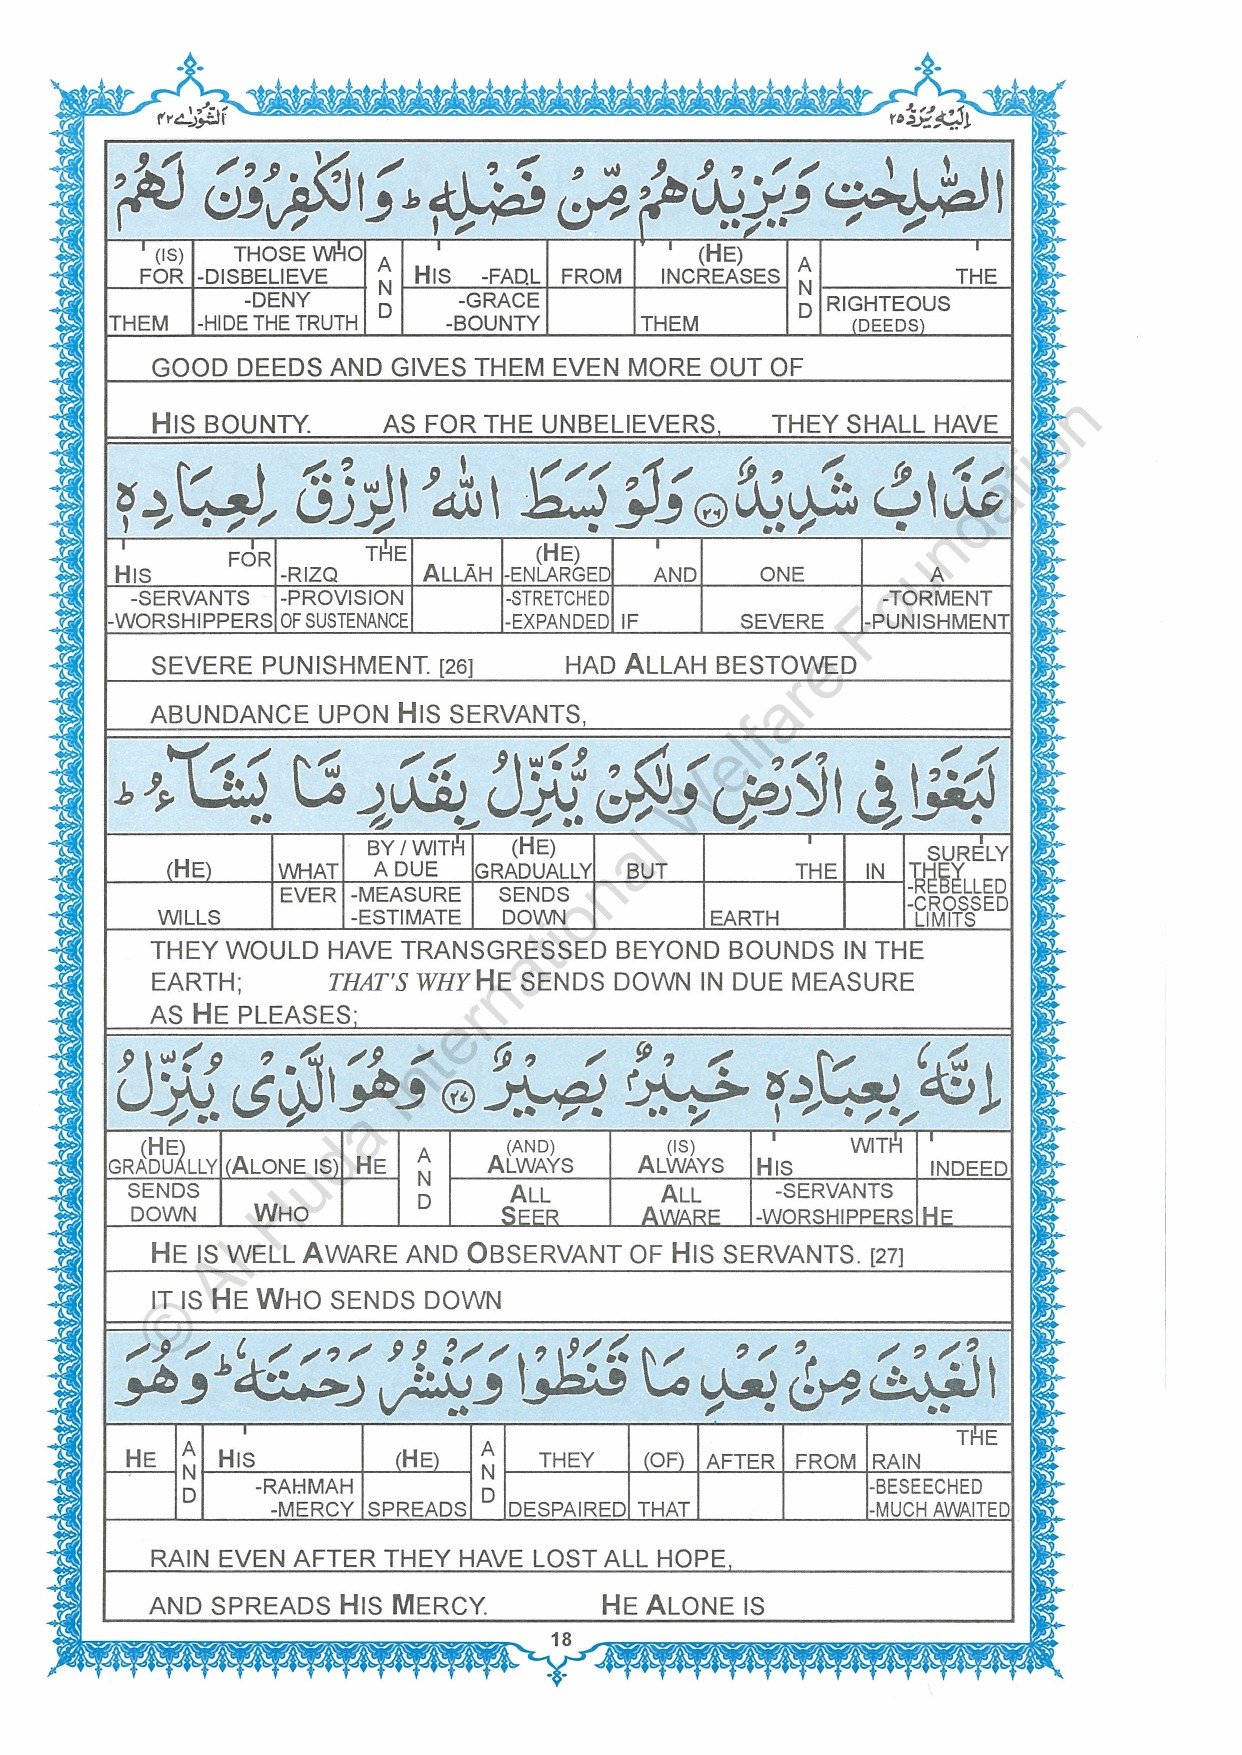 اَلشُّوْرٰى ٤٢ اِلَيْهِ يُرَدُّ ٢٥
الصّٰلِحٰتِ وَيَزِيْدُهُمْ مِّنْ فَضْلِهٖ ؕ وَالْكٰفِرُوْنَ لَهُمْ
(IS) FOR THEM | THOSE WHO -DISBELIEVE -DENY -HIDE THE TRUTH | AND | HIS -FADL -GRACE -BOUNTY | FROM | (HE) INCREASES THEM | AND | THE RIGHTEOUS (DEEDS)
GOOD DEEDS AND GIVES THEM EVEN MORE OUT OF
HIS BOUNTY. AS FOR THE UNBELIEVERS, THEY SHALL HAVE
عَذَابٌ شَدِيْدٌ ﴿٢٦﴾ وَلَوْ بَسَطَ اللّٰهُ الرِّزْقَ لِعِبَادِهٖ
HIS FOR -SERVANTS -WORSHIPPERS | THE -RIZQ -PROVISION OF SUSTENANCE | ALLĀH | (HE) -ENLARGED -STRETCHED -EXPANDED | AND IF | ONE SEVERE | A -TORMENT -PUNISHMENT
SEVERE PUNISHMENT. [26] HAD ALLAH BESTOWED
ABUNDANCE UPON HIS SERVANTS,
لَبَغَوْا فِى الْاَرْضِ وَلٰكِنْ يُّنَزِّلُ بِقَدَرٍ مَّا يَشَآءُ ؕ
(HE) WILLS | WHAT EVER | BY / WITH A DUE -MEASURE -ESTIMATE | (HE) GRADUALLY SENDS DOWN | BUT | THE EARTH | IN | SURELY THEY -REBELLED -CROSSED LIMITS
THEY WOULD HAVE TRANSGRESSED BEYOND BOUNDS IN THE
EARTH; THAT'S WHY HE SENDS DOWN IN DUE MEASURE
AS HE PLEASES;
اِنَّهٗ بِعِبَادِهٖ خَبِيْرٌۢ بَصِيْرٌ ﴿٢٧﴾ وَهُوَ الَّذِىْ يُنَزِّلُ
(HE) GRADUALLY SENDS DOWN | (ALONE IS) WHO | HE | AND | (AND) ALWAYS ALL SEER | (IS) ALWAYS ALL AWARE | HIS WITH -SERVANTS -WORSHIPPERS | INDEED HE
HE IS WELL AWARE AND OBSERVANT OF HIS SERVANTS. [27]
IT IS HE WHO SENDS DOWN
الْغَيْثَ مِنْۢ بَعْدِ مَا قَنَطُوْا وَيَنْشُرُ رَحْمَتَهٗ ؕ وَهُوَ
HE | AND | HIS -RAHMAH -MERCY | (HE) SPREADS | AND | THEY DESPAIRED | (OF) THAT | AFTER | FROM | THE RAIN -BESEECHED -MUCH AWAITED
RAIN EVEN AFTER THEY HAVE LOST ALL HOPE,
AND SPREADS HIS MERCY. HE ALONE IS
18
© Al-Huda International Welfare Foundation